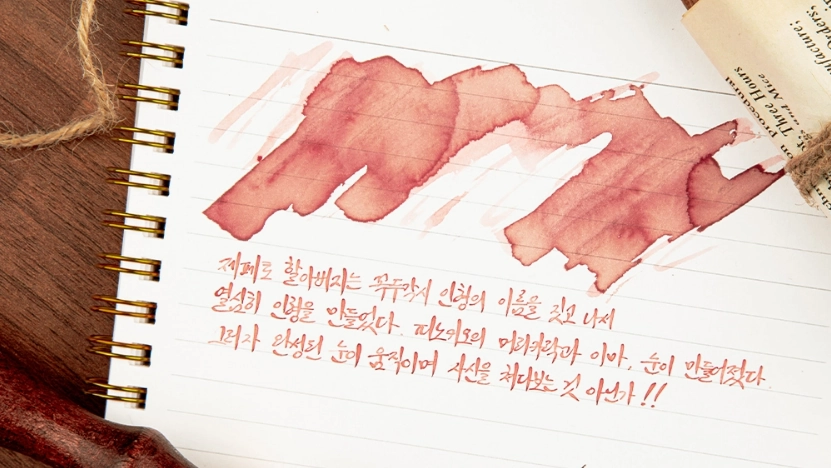 제페토 할아버지는 꼭두각시 인형의 이름을 짓고 나서
열심히 인형을 만들었다. 피노키오의 머리카락과 이마, 눈이 만들어졌다.
그러자 완성된 눈이 움직이며 자신을 쳐다보는 것 아닌가!!
Three Hours